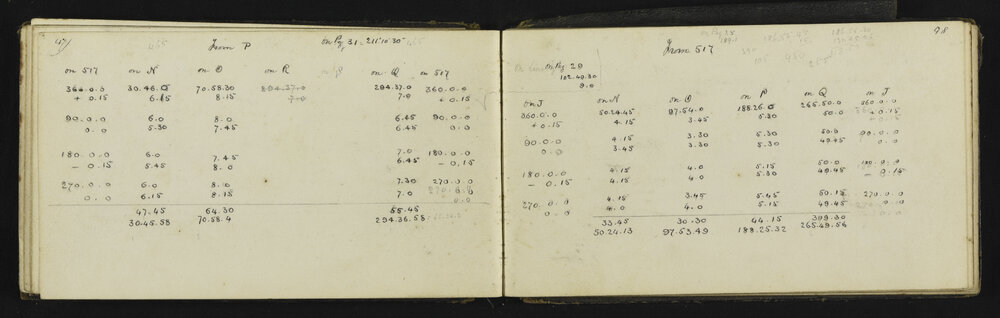 47
From P
on Pg 31 = 215.10.30
on 517 on N on O on R on Q on 517
360.0.0 30.46.0 70.58.30 294.37.0 294.37.0 360.0.0
+ 0.15 6.15 8.15 7.0 7.0 + 0.15
90.0.0 6.0 8.0 6.45 90.0.0
0.0 5.30 7.45 6.45 0.0
180.0.0 6.0 7.45 7.0 180.0.0
- 0.15 5.45 8.0 6.45 - 0.15
270.0.0 6.0 8.0 7.30 270.0.0
0.0 6.15 8.15 7.0 0.0
47.45 64.30 55.45
30.45.58 70.58.4 294.36.58
48
From 517
on Pg 29
102.49.30
0.0
on J on N on O on P on Q on J
360.0.0 50.24.45 97.54.0 188.26.0 265.50.0 360.0.0
+ 0.15 4.15 3.45 5.30 50.0 + 0.15
90.0.0 4.15 3.30 5.30 50.0 90.0.0
0.0 3.45 3.30 5.30 49.45 0.0
180.0.0 4.15 4.0 5.15 50.0 180.0.0
- 0.15 4.15 4.0 5.30 49.45 - 0.15
270.0.0 4.15 3.45 5.45 50.15 270.0.0
0.0 4.0 4.0 5.15 49.45 0.0
33.45 30.30 44.15 399.30
50.24.13 97.53.49 188.25.32 265.49.56